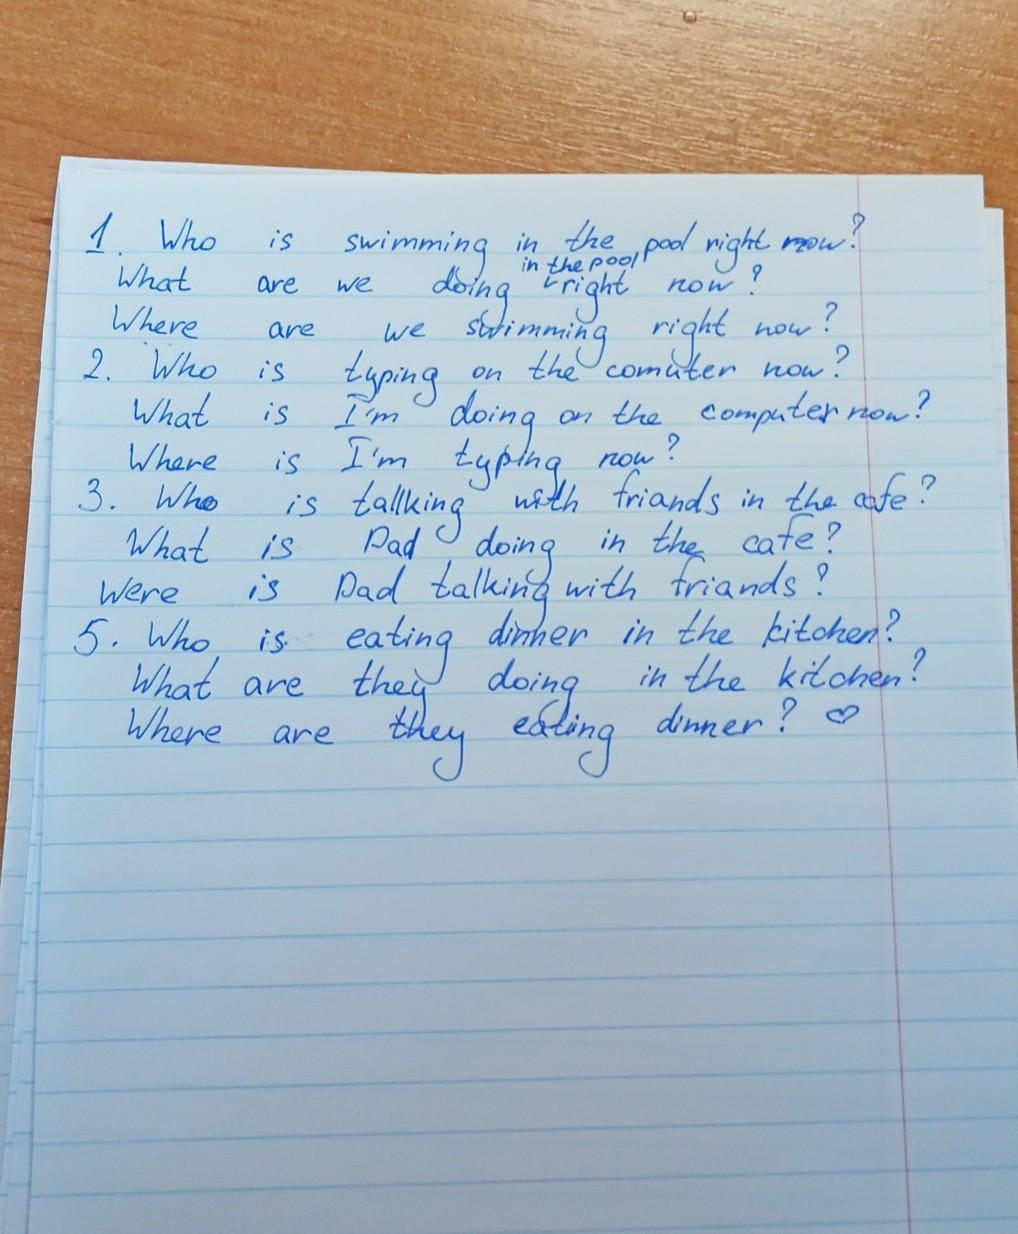 1. Who is swimming in the pool right now?
What are we doing in the pool right now?
Where are we swimming right now?
2. Who is typing on the comuter now?
What is I'm doing on the computer now?
Where is I'm typing now?
3. Who is tallking with friands in the cafe?
What is Dad doing in the cafe?
Were is Dad talking with friands?
5. Who is eating dinner in the kitchen?
What are they doing in the kitchen?
Where are they eating dinner? ♡